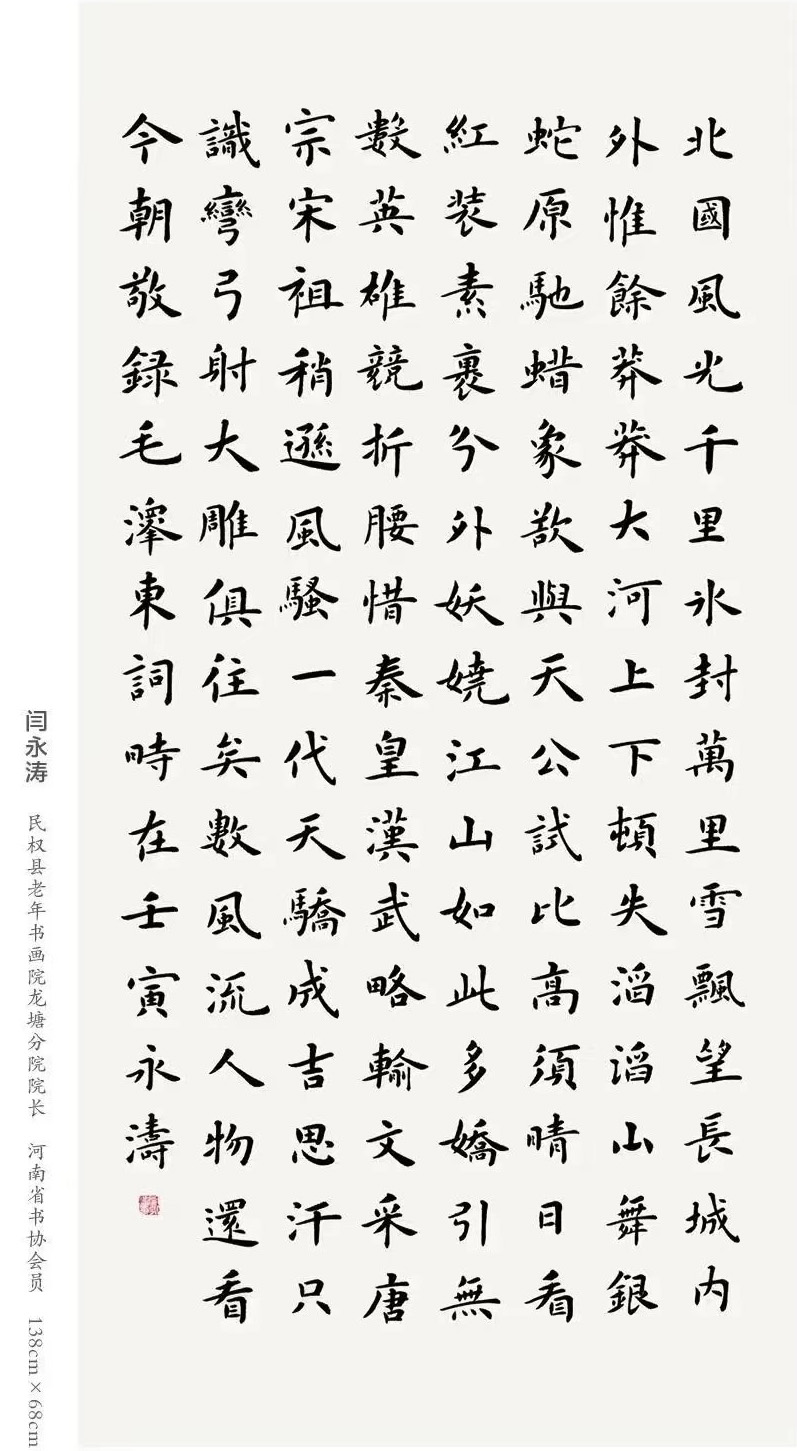 北國風光千里氷封萬里雪飄望長城内
外惟餘莽莽大河上下頓失滔滔山舞銀
蛇原馳蜡象欲與天公試比高須晴日看
紅装素裹分外妖嬈江山如此多嬌引無
數英雄競折腰惜秦皇漢武略輸文采唐
宗宋祖稍遜風騷一代天驕成吉思汗只
識彎弓射大雕俱往矣數風流人物還看
今朝敬録毛澤東詞時在壬寅永濤
闫永涛 民权县老年书画院龙塘分院院长 河南省书协会员 138cm×68cm